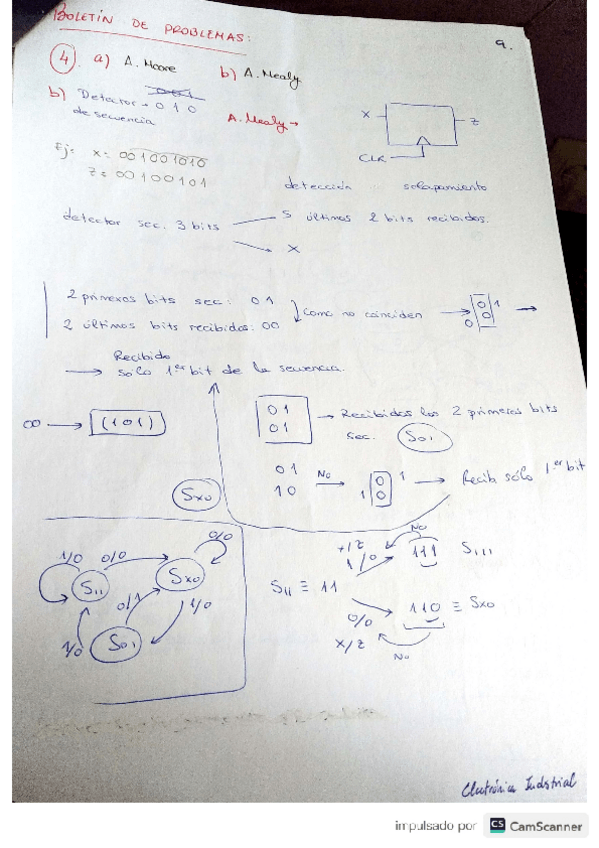 BOLETÍN DE PROBLEMAS:
9.
4 a) A. Moore b) A. Mealy
b) Detector → 0 1 0
de secuencia
A. Mealy →
X
Z
CLK
Ej: x = 001001010
z = 00100101
detección solapamiento
detector sec. 3 bits
S últimos 2 bits recibidos.
X
2 primeros bits sec: 01
2 últimos bits recibidos: 00
Como no coinciden
0 1
0 0
Recibido
→ solo 1er bit de la secuencia.
00 → (101)
01
01
→ Recibidos los 2 primeros bits
sec. S01
01
10
No
0 1
1 0
→ Recib sólo 1er bit
SX0
S11 ≡ 11
x/z
1/0
No
111 S111
0/0
x/z
110 ≡ SX0
No
1/0 0/0 0/0
S11 SX0
0/1 1/0
1/0 S01
Electrónica Industrial
impulsado por CS CamScanner